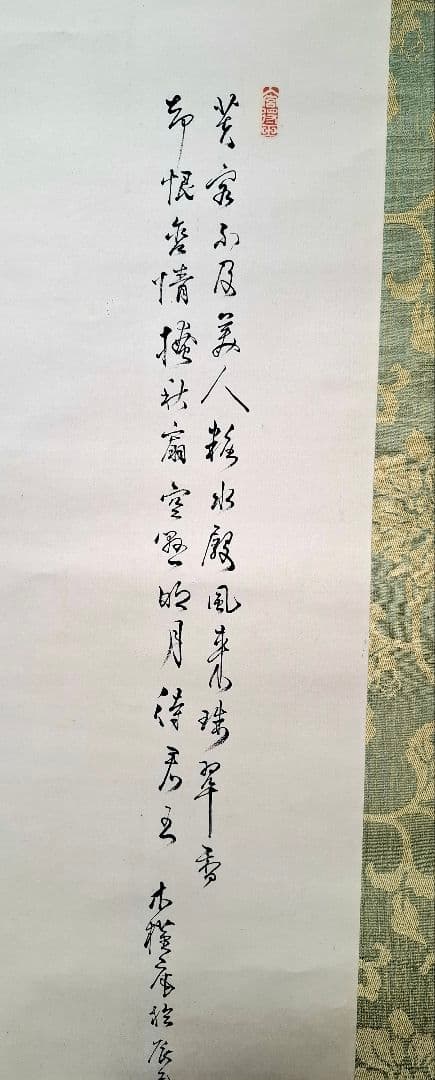 芙容不及美人粧水殿風来珠翠香
却恨含情掩秋扇空懸明月待君王
木